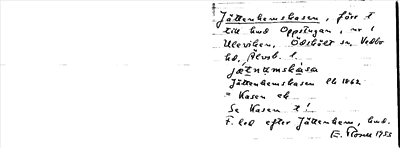 Jättenhemskasen, förr t
till hmd Oppstugan, nr 1
Uleviken, Ödskölt sn, Vedbo
hd, Älvsb. l.
Jättenhemskasen Lb 1862
= Kasen ek
Se Kasen t!
F. led efter Jättenhem, hmd.
1953